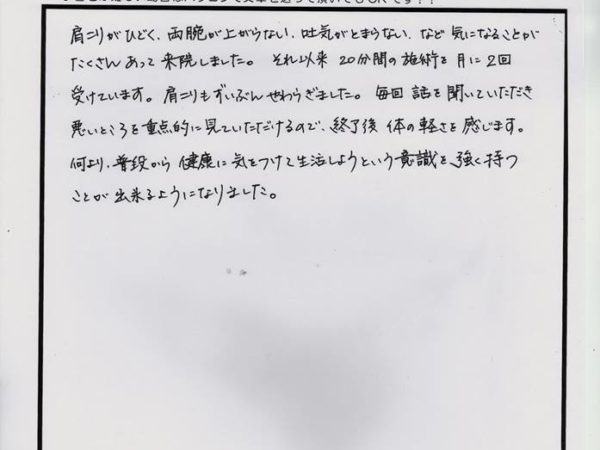 肩こりがひどく、両腕が上がらない、吐気がとまらない、など 気になることが
たくさんあって 来院しました。 それ以来 20分間の施術を 月に2回
受けています。肩こりもずいぶんやわらぎました。 毎回 話を聞いていただき
悪いところを重点的に見ていただけるので、終了後 体の軽さを感じます。
何より、普段から 健康に気をつけて生活しようという意識を、強く持つ
ことが 出来るようになりました。